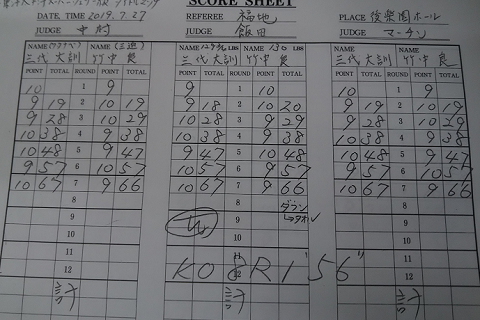 SCORE SHEET
DATE TIME 2019.7.27 REFEREE 福地 PLACE 後楽園ホール
JUDGE 中村 JUDGE 飯田 JUDGE マーチン
NAME NAME NAME LBS LBS NAME NAME
三代大訓 竹中良 三代大訓 130 竹中良 三代大訓 竹中良
POINT TOTAL ROUND POINT TOTAL POINT TOTAL ROUND POINT TOTAL POINT TOTAL ROUND POINT TOTAL
10 1 9 9 1 10 10 1 9
9 19 2 10 19 9 18 2 10 20 9 19 2 10 19
9 28 3 10 29 10 28 3 9 29 9 28 3 10 29
10 38 4 9 38 10 38 4 9 38 10 38 4 9 38
10 48 5 9 47 9 47 5 10 48 10 48 5 9 47
9 57 6 10 57 10 57 6 9 57 9 57 6 10 57
10 67 7 9 66 10 67 7 9 66 10 67 7 9 66
8 8 ダウン 8
9 W 9 →タオル 9
10 10 10
11 11 11
12 KO 8R 1'56" 12
計 計 計